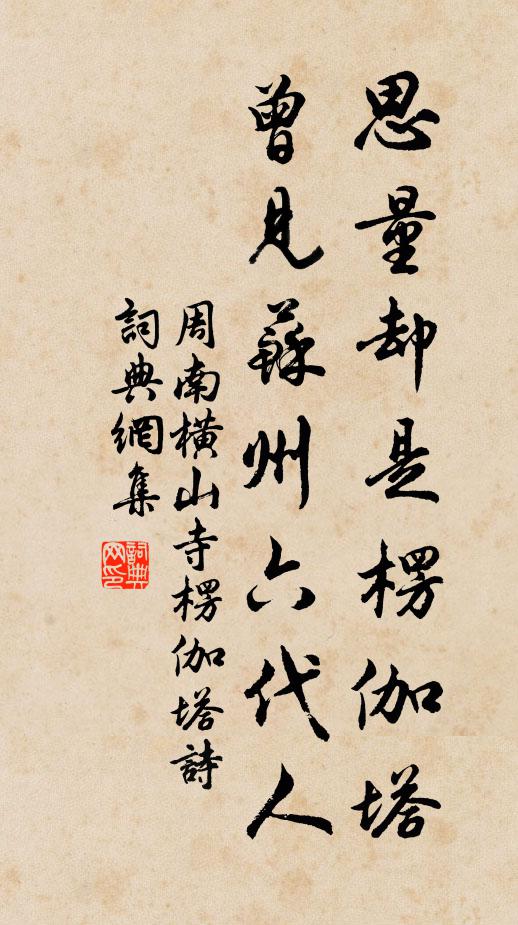 思量却是楞伽塔
曾見蘇州六代人
周南橫山寺楞伽塔詩
詞典網集
詞典網印